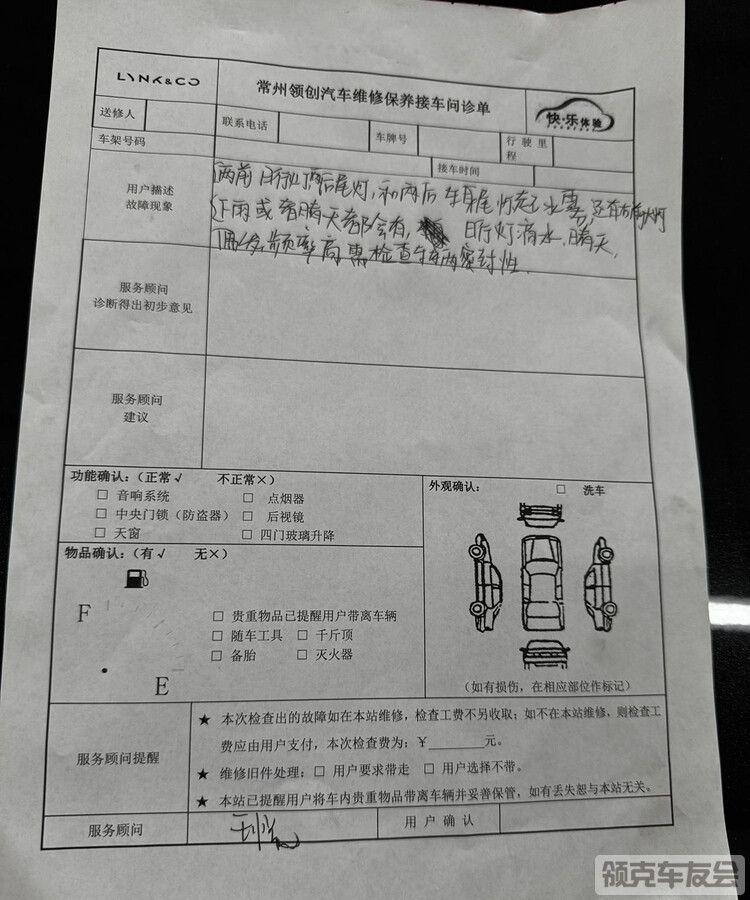 LYNK&CO
常州领创汽车维修保养接车问诊单
快·乐体验
送修人
联系电话
车牌号
行驶里程
车架号码
接车时间
用户描述
故障现象
两前日行灯两后尾灯,和两后车身尾灯起水雾,还有右前大灯
下雨或者晴天都会有, 日行灯滴水,晴天,
偶发,频率高 需检查车辆密封性
服务顾问
诊断得出初步意见
服务顾问
建议
功能确认:(正常√ 不正常×)
□ 音响系统 □ 点烟器
□ 中央门锁(防盗器) □ 后视镜
□ 天窗 □ 四门玻璃升降
外观确认: □ 洗车
物品确认:(有√ 无×)
F
E
□ 贵重物品已提醒用户带离车辆
□ 随车工具 □ 千斤顶
□ 备胎 □ 灭火器
(如有损伤,在相应部位作标记)
服务顾问提醒
★ 本次检查出的故障如在本站维修,检查工费不另收取;如不在本站维修,则检查工
费应由用户支付,本次检查费为:¥______元。
★ 维修旧件处理:□ 用户要求带走 □ 用户选择不带。
★ 本站已提醒用户将车内贵重物品带离车辆并妥善保管,如有丢失恕与本站无关。
服务顾问
用户确认
领克车友会